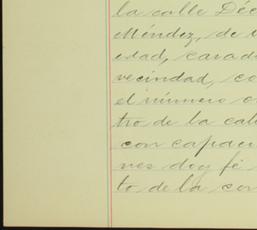 la calle Déc
Méndez, de
edad, casad
vecindad, co
el número o
tro de la cal
con capaci
nes doy fé
to de la con